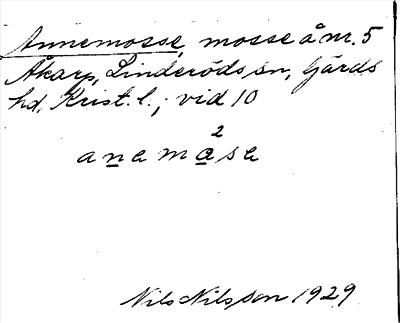 Annemosse, mosse å nr. 5
Åkarp, Linderöds sn, Gärds
hd. Krist. l.; vid 10
2
anemase
Nils Nilsson 1929